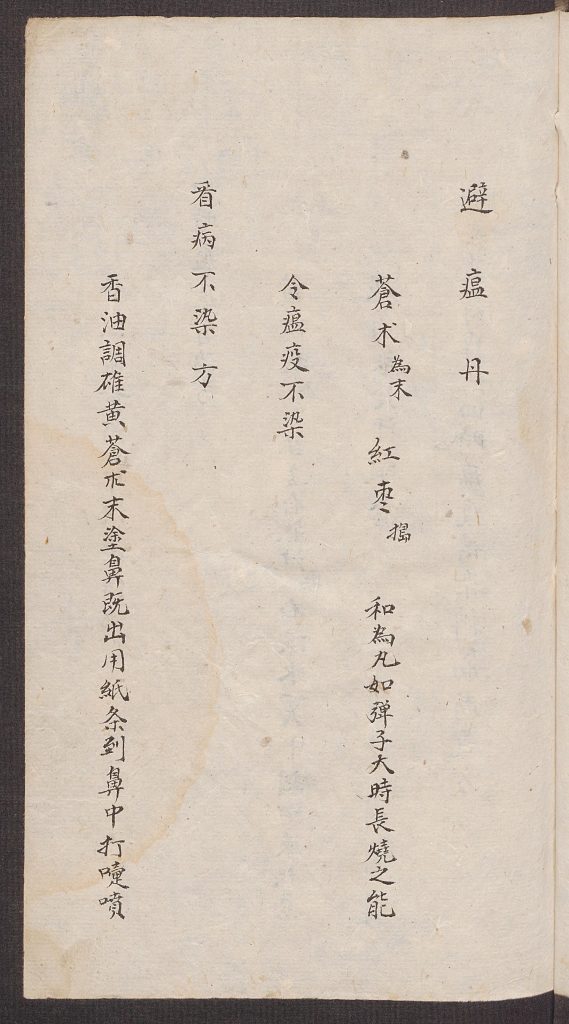 避瘟丹
蒼术為末 紅枣搗 和為丸如弹子大時長燒之能
令瘟疫不染
看病不染方
香油調雄黄蒼朮末塗鼻既出用紙条到鼻中打嚏噴